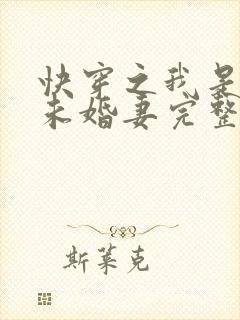 快穿之我是
未婚妻完整
斯莱克